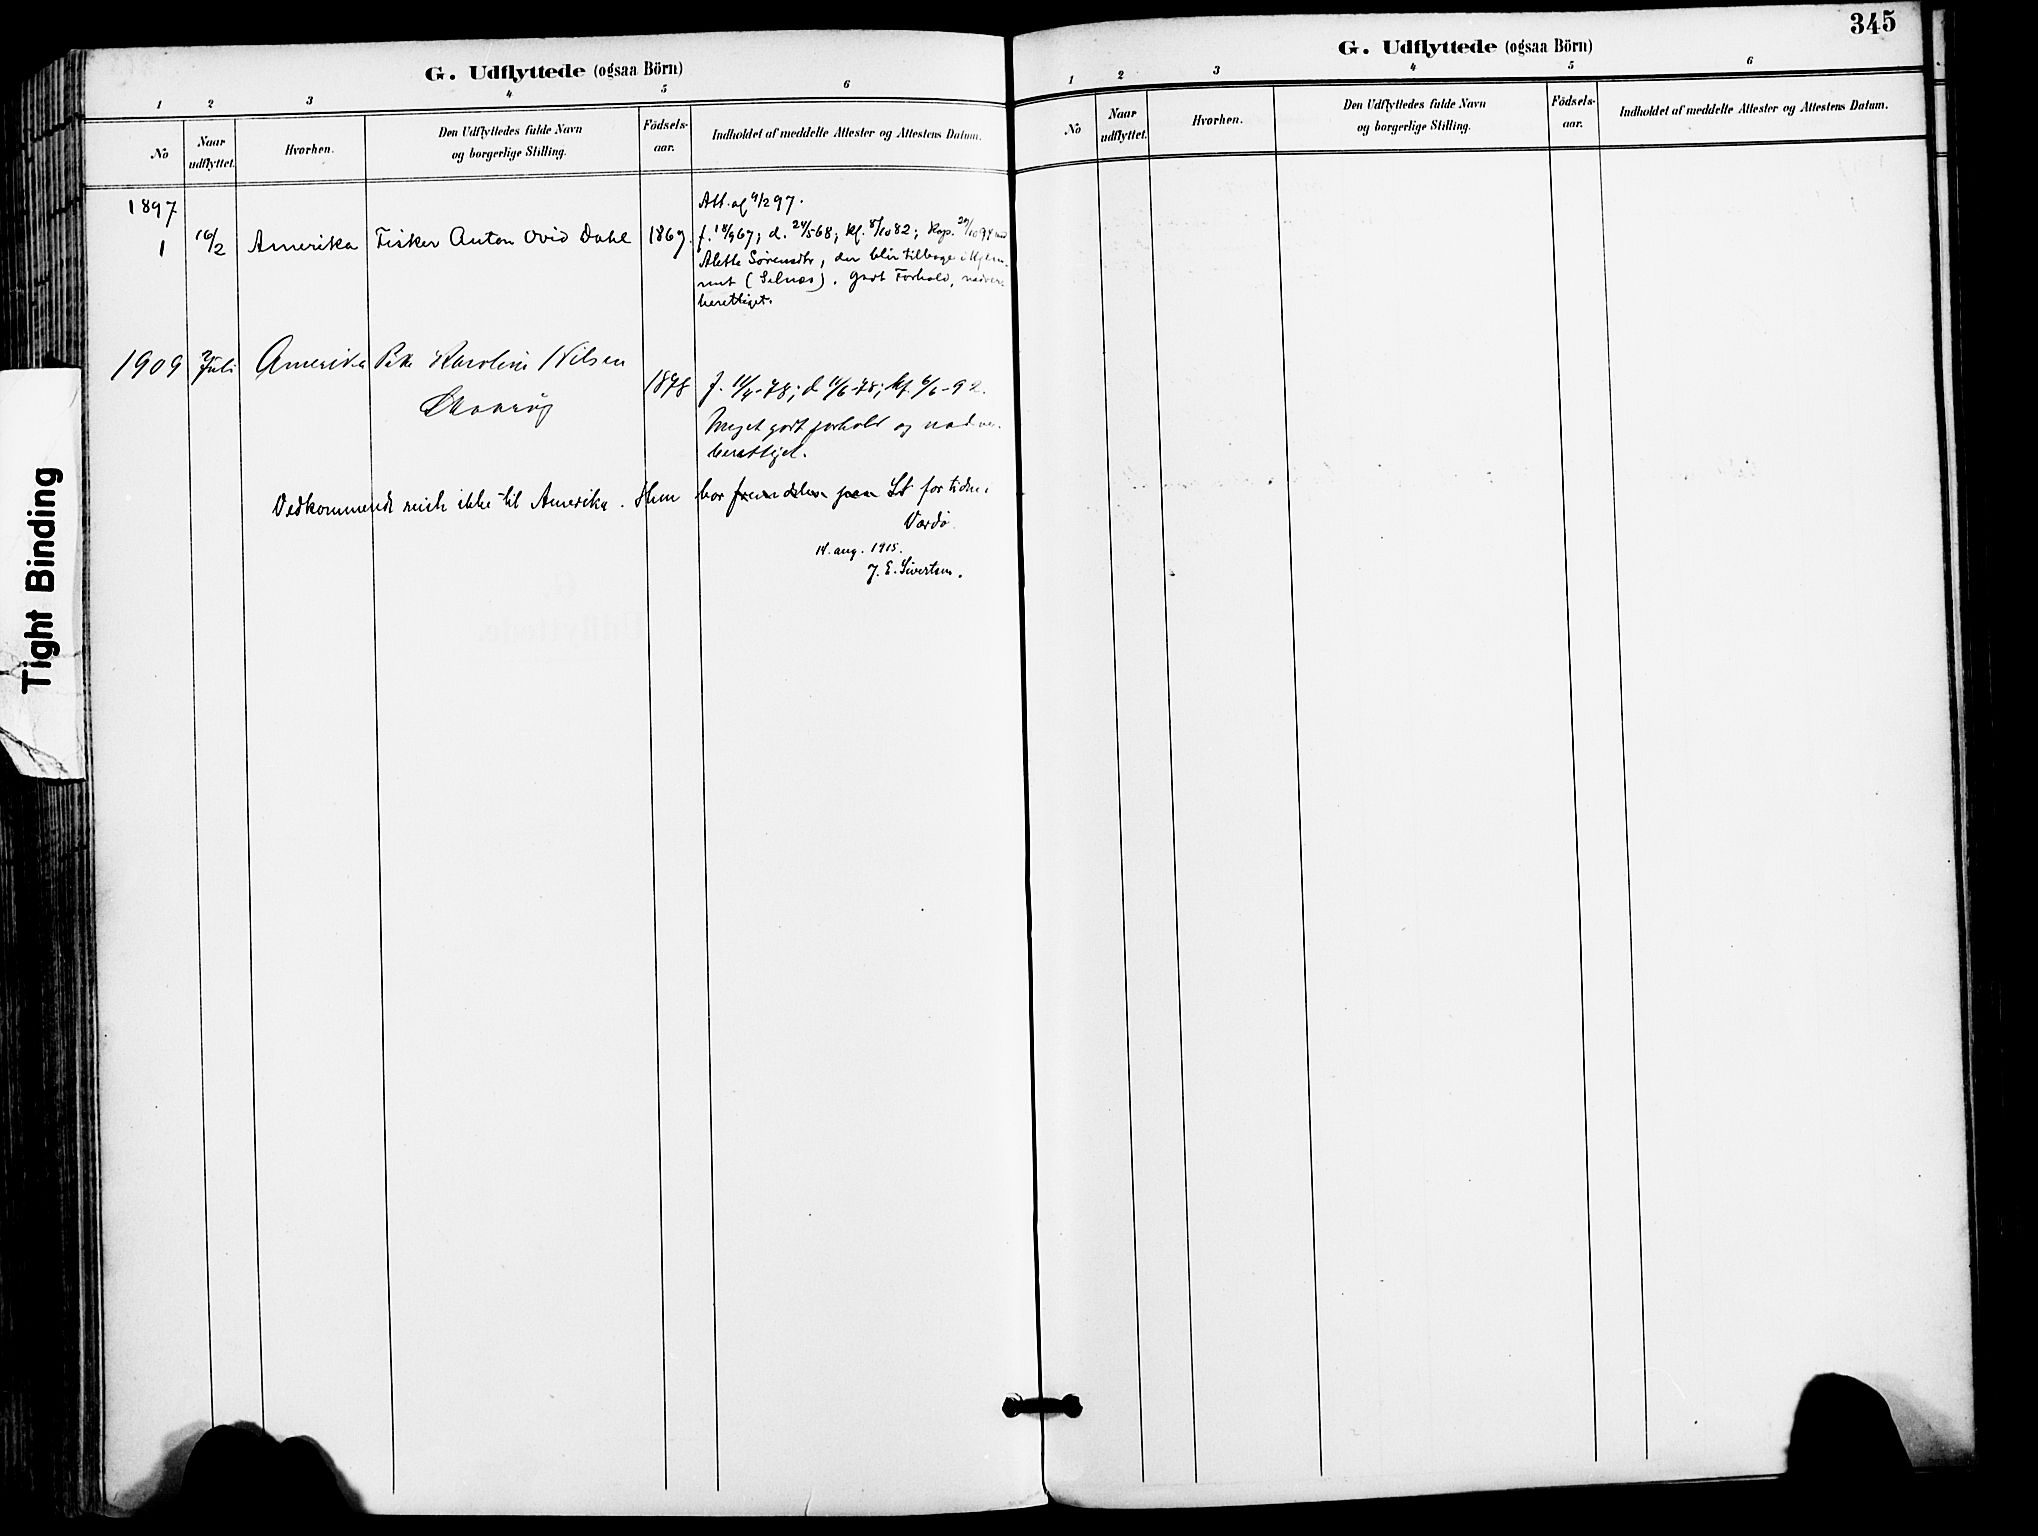 345
G. Udflyttede (ogsaa Börn)
1 2 3 4 5 6
No
Naar udflyttet.
Hvorhen.
Den Udflyttedes fulde Navn og borgerlige Stilling.
Födsels-aar.
Indholdet af meddelte Attester og Attestens Datum.
1897
Att. af 4/2 97.
1 16/2 Amerika Fisker Anton Ovid Dahl 1867. f. 18/9 67; d. 24/5 68; kf. 8/10 82; Kop. 29/10 94 med
Alette Sørensdtr, der blir tilbage i Hjem-
met (Selnæs). Godt Forhold, nadver-
berettiget.
1909 Juli Amerika Pike Karoline Nilsen
1878 f. 11/4-78; d. 11/6-78; kf. 6/6-92.
Meget godt forhold og nadver-
berettiget.
Vedkommende reiste ikke til Amerika. Hun bor fremdeles paa for tiden i
Vardø.
14. aug. 1915.
J. E. Sivertsen.
G. Udflyttede (ogsaa Börn)
1 2 3 4 5 6
No
Naar udflyttet.
Hvorhen.
Den Udflyttedes fulde Navn og borgerlige Stilling.
Födsels-aar.
Indholdet af meddelte Attester og Attestens Datum.
Tight Binding